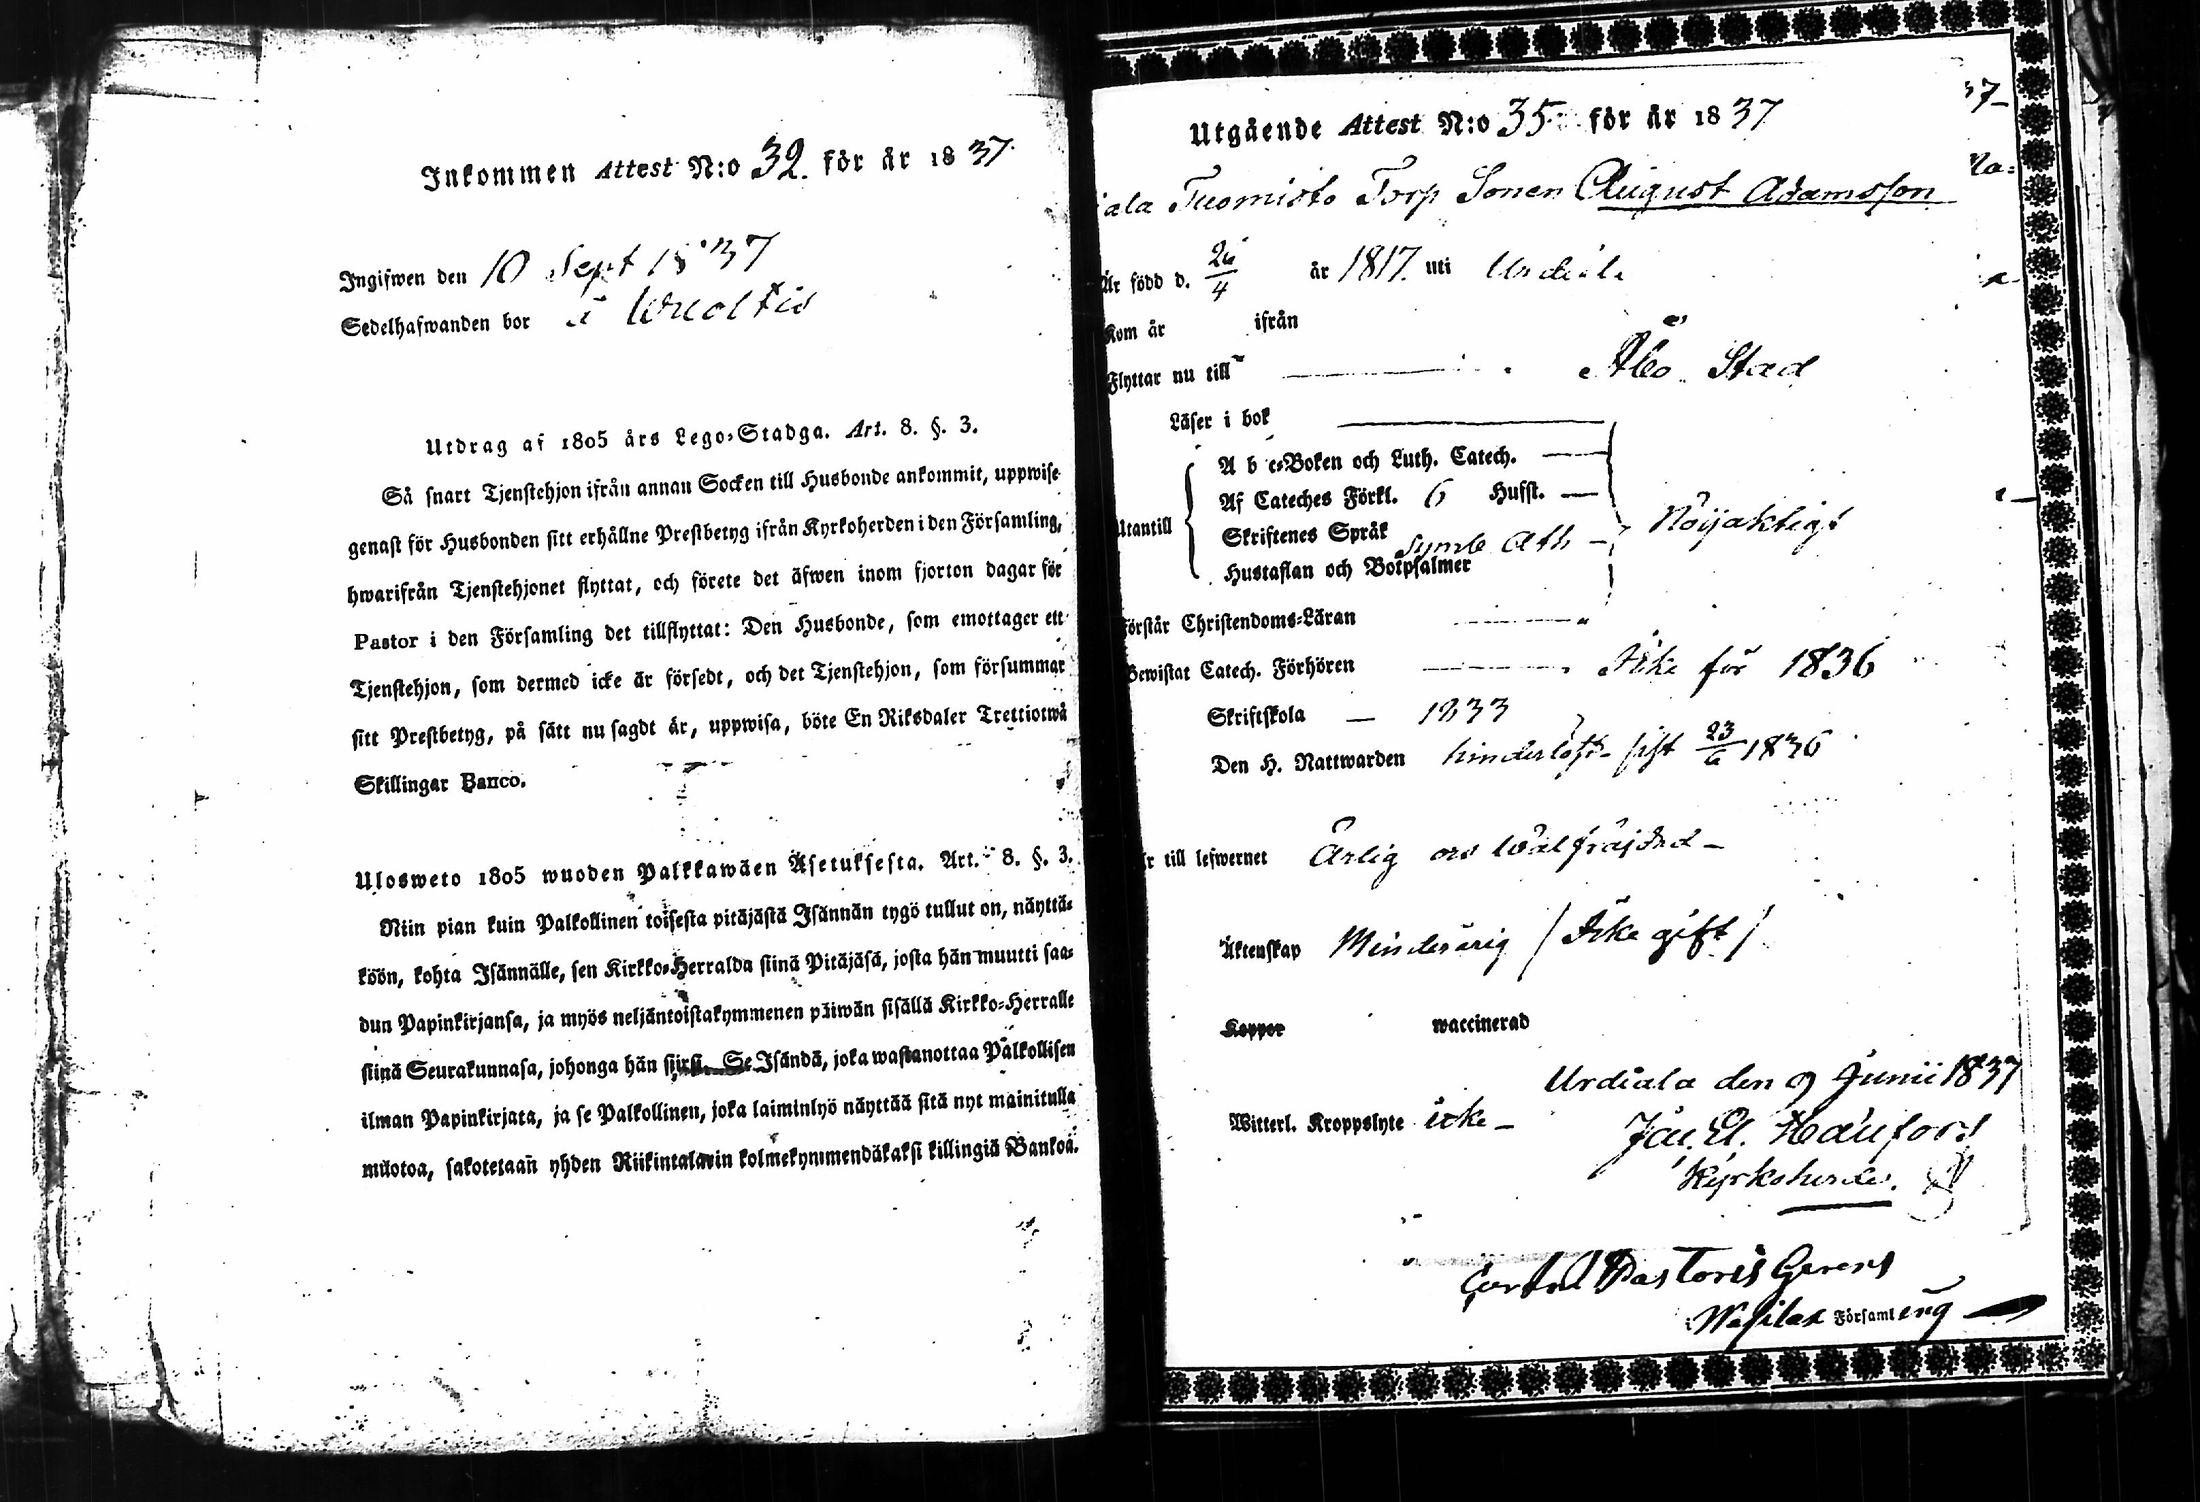 Inkommen Attest N:o 32. för år 1837.
Ingifwen den 10 Sept 1837
Sedelhafwanden bor i
Utdrag af 1805 års Lego-Stadga. Art. 8. §. 3.
Så snart Tjenstehjon ifrån annan Socken till Husbonde ankommit, uppwise
genast för Husbonden sitt erhållne Prestbetyg ifrån Kyrkoherden i den Församling,
hwarifrån Tjenstehjonet flyttat, och förete det äfwen inom fjorton dagar för
Pastor i den Församling det tillflyttat: Den Husbonde, som emottager ett
Tjenstehjon, som dermed icke är försedt, och det Tjenstehjon, som försummar
sitt Prestbetyg, på sätt nu sagdt är, uppwisa, böte En Riksdaler Trettiotwå
Skillingar Banco.
Ulosweto 1805 wuoden Palkkawäen Asetuksesta. Art. 8. §. 3.
Niin pian kuin Palkollinen toisesta pitäjästä Isännän tygö tullut on, näyttä-
köön, kohta Isännälle, sen Kirkko-Herralda siinä Pitäjäsä, josta hän muutti saa-
dun Papinkirjansa, ja myös neljäntoistakymmenen päiwän sisällä Kirkko-Herralle
siinä Seurakunnasa, johonga hän siirsi. Se Isändä, joka wastanottaa Palkollisen
ilman Papinkirjata, ja se Palkollinen, joka laiminlyö näyttää sitä nyt mainitulla
muotoa, sakotetaan yhden Riikintalarin kolmekymmendäkaksi killingiä Bankoa.
Utgående Attest N:o 35 för år 1837
Tuomisto Torp Sonen August Adamsson
Är född d. 26/4 år 1817. uti Urdiala
Kom år ifrån
Flyttar nu till Åbo Stad
Läser i bok
A b c-Boken och Luth. Catech.
Af Cateches Förkl. 6 Husst.
Utantill Skriftenes Språk Symb Ath Nöijaktigt
Hustaflan och Botpsalmer
Förstår Christendoms-Läran
Bewistat Catech. Förhören Icke för 1836
Skriftskola 1833
Den H. Nattwarden sist 23/6 1836
Är till lefwernet Ärlig och wälfräjdad
Äktenskap Minderårig (Icke gift)
Koppor waccinerad
Urdiala den 9 Junii 1837
Witterl. Kroppslyte icke
Kyrkoherde.
Coram Pastoris Gerens
i Församling